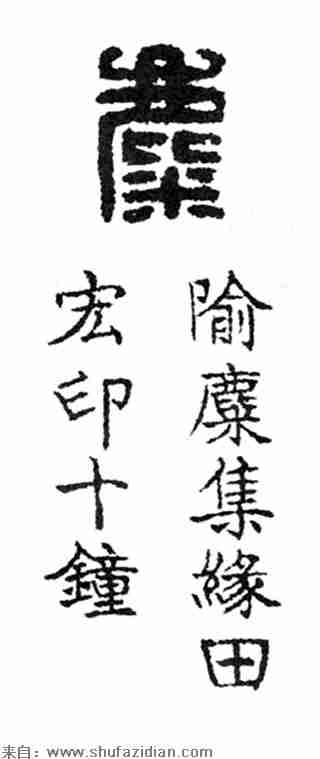 麋
隃麋集緣田
宏印十鐘
来自：www.shufazidian.com